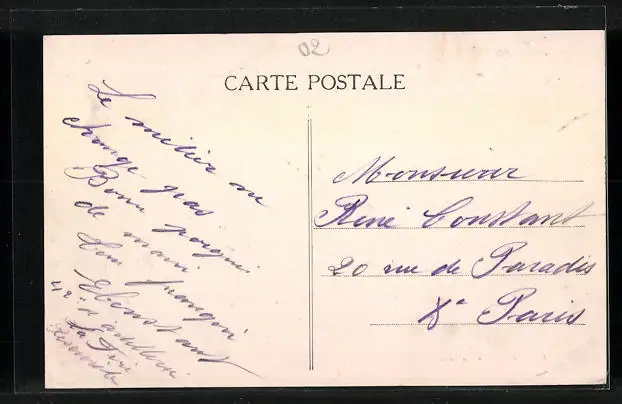 02
CARTE POSTALE
Le métier ne
change pas
Bonne poignée
de main
Ton frangin
E Constant
42e d'artillerie
La Fère
Monsieur
René Constant
20 rue de Paradis
Xe Paris